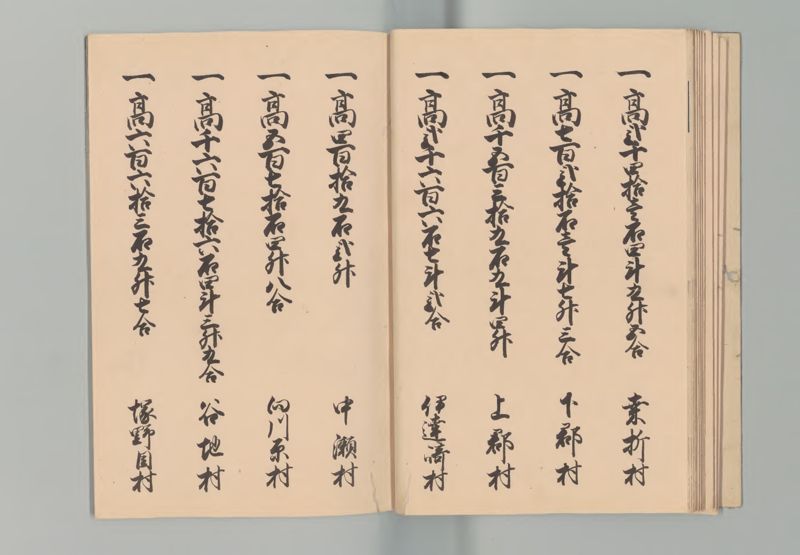 一 高弐千四拾壱石四斗九升五合 桒折村
一 高七百弐拾石壱斗七升三合 下郡村
一 高千五百三拾九石九斗四升 上郡村
一 高弐千六百六石七斗弐合 伊達崎村
一 高四百拾九石弐升 中瀬村
一 高五百七拾石四升八合 向川原村
一 高千六百七拾六石四斗三升九合 谷地村
一 高六百六拾三石九升七合 塚野目村